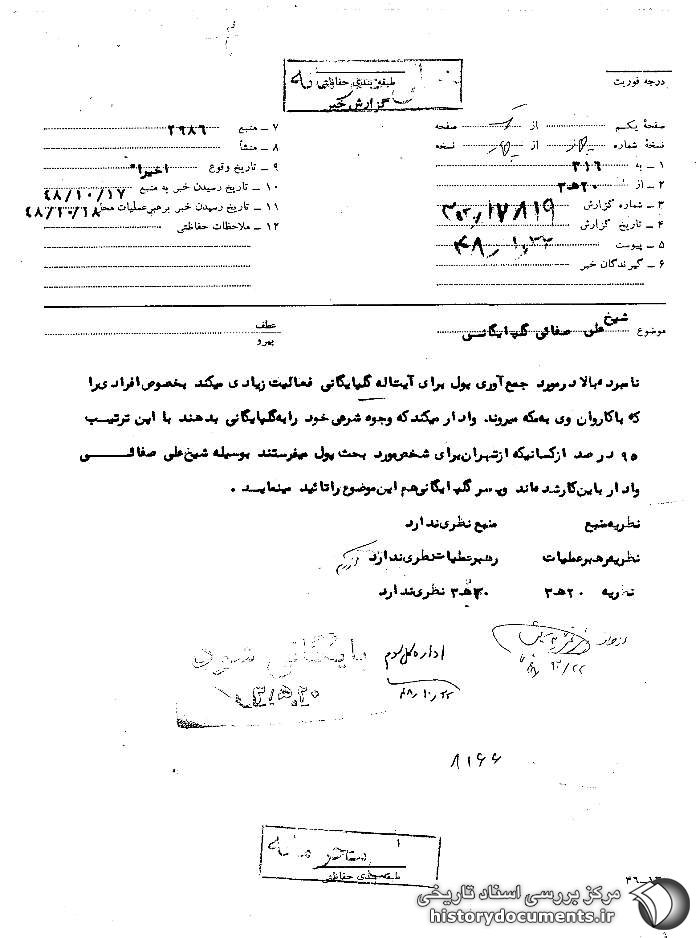 درجه فوریت
طبقه‌بندی حفاظتی
گزارش خبر
صفحهٔ یکم از صفحه
نسخهٔ شماره از نسخه
۱ ـ به ۳۱۶
۲ ـ از ۲۰ ه‍ ۳
۳ ـ شماره گزارش ۱۷۸۱۹
۴ ـ تاریخ گزارش
۵ ـ پیوست
۶ ـ گیرندگان خبر
۷ ـ منبع ۲۹۸۶
۸ ـ منشأ
۹ ـ تاریخ وقوع اخیرا"
۱۰ ـ تاریخ رسیدن خبر به منبع ۴۸/۱۰/۱۷
۱۱ ـ تاریخ رسیدن خبر برهبر عملیات محل ۴۸/۱۰/۱۸
۱۲ ـ ملاحظات حفاظتی
موضوع شیخ علی صفائی گلپایگانی
عطف
پیرو
نامبرده بالا در مورد جمع آوری پول برای آیت‌اله گلپایگانی فعالیت زیادی میکند بخصوص افرادی را
که با کاروان وی به مکه میروند وادار میکند که وجوه شرعی خود را به گلپایگانی بدهند با این ترتیب
۹۵ در صد از کسانیکه از تهران برای شخص مورد بحث پول میفرستند بوسیله شیخ علی صفائی
وادار باین کار شده‌اند و پسر گلپایگانی هم این موضوع را تائید مینماید .
نظریه منبع منبع نظری ندارد
نظریه رهبر عملیات رهبر عملیات نظری ندارد
نظریه ۲۰ ه‍ ۳ ۲۰ ه‍ ۳ نظری ندارد
اداره کل سوم
بایگانی شود
۲۰ ه‍ ۳
۸۱۶۶
طبقه‌بندی حفاظتی
مرکز بررسی اسناد تاریخی
historydocuments.ir